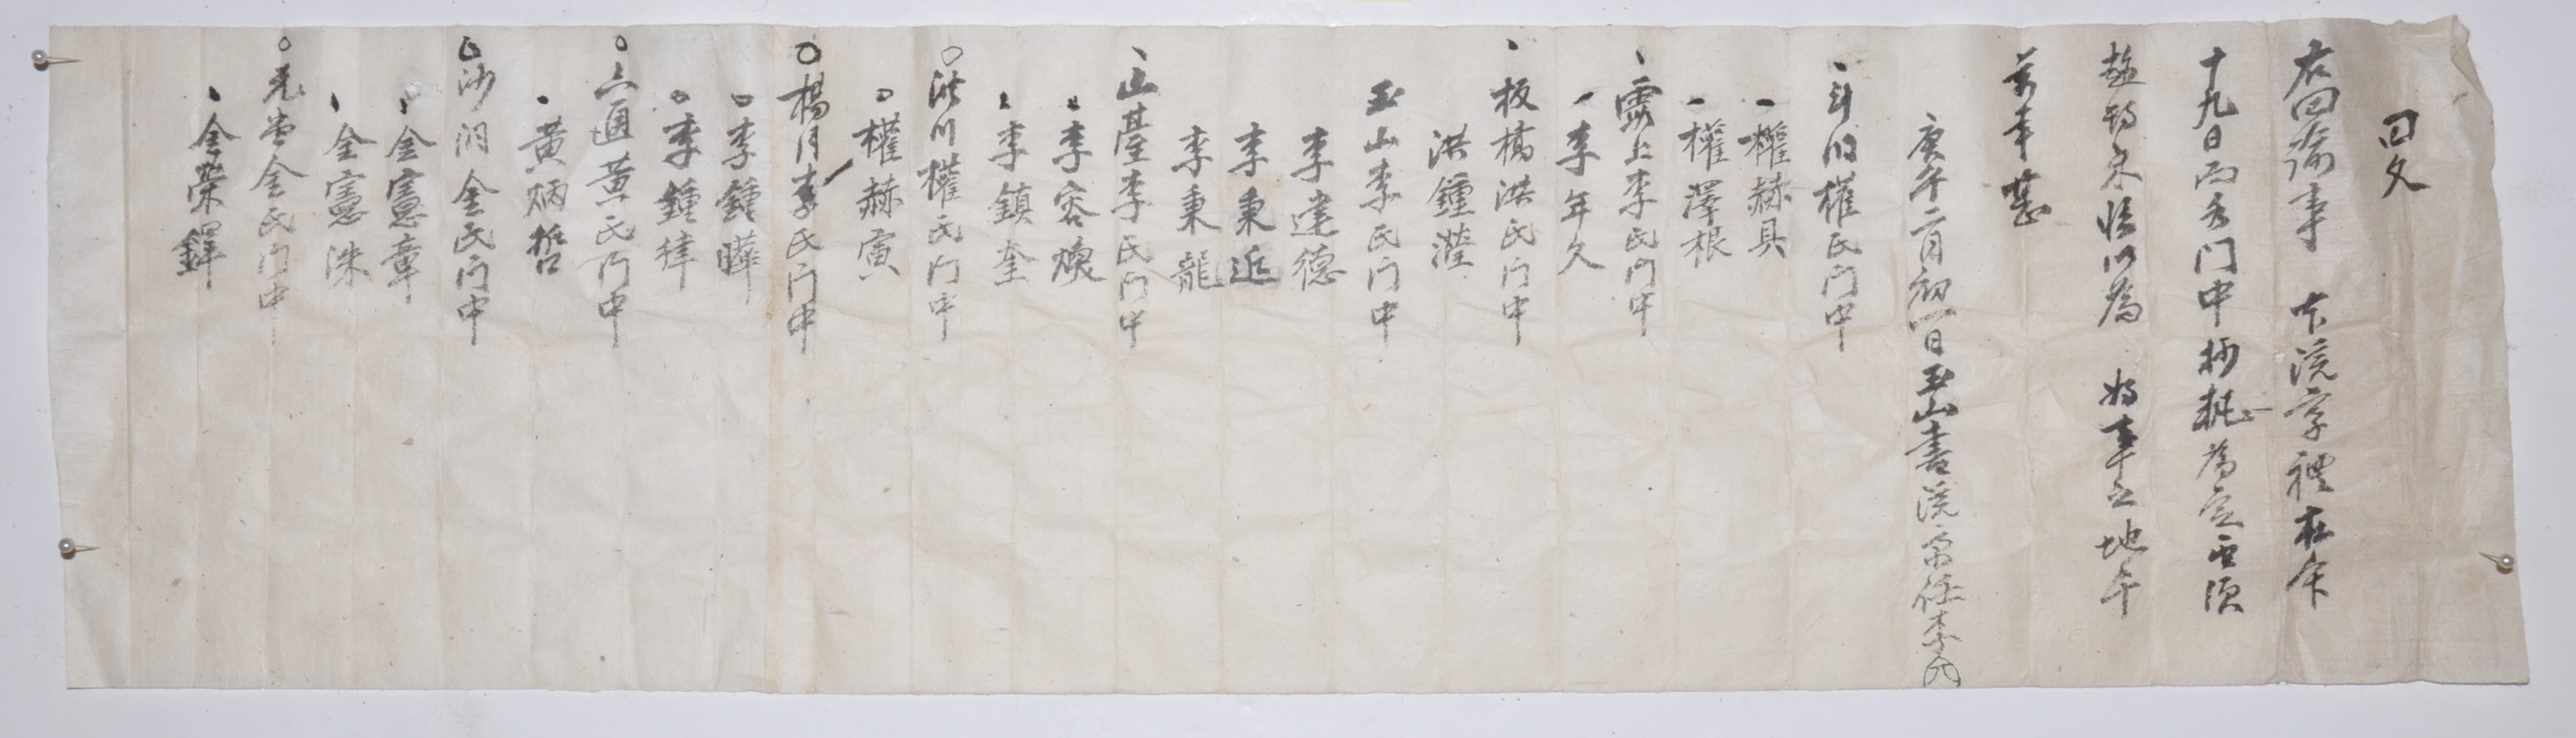 回文
右回諭事 本院享禮在今
十九日而各門中抄執爲定 玆須
趁時來臨以爲 好事之地千
萬幸甚
庚午二月初一日玉山書院齋任李
斗旧權氏門中
權赫具
權澤根
雲上李氏門中
李年久
板橋洪氏門中
洪鍾瀅
玉山李氏門中
李達德
李秉近
李秉龍
山臺李氏門中
李容煥
李鎮奎
洪川權氏門中
權赫寅
楊月李氏門中
李鍾曄
李鍾律
六通黃氏門中
黃炳哲
沙洞金氏門中
金憲章
金憲洙
光堂金氏門中
金榮鐸